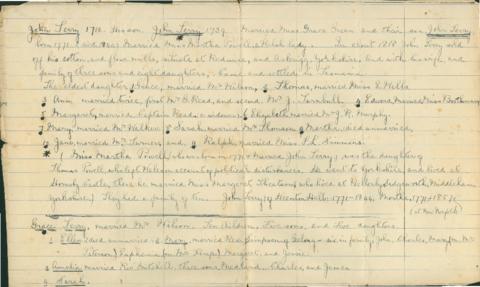 John Terry 1710. his son John Terry 1739. Married Miss Grace Green and their son John Terry
born 1771. died 1844 Married Miss Martha Powell, a Welsh lady. In about 1818 John Terry sold
off his cotton, and flour mills, situate at Redmire, and Askrigg, Yorkshire, and with his wife, and
family of three sons and eight daughters, came and settled in Tasmania
The eldest daughter 1 Grace, married Mr Wilson, 2 Thomas, married Miss E. Wells
3 Ann married twice, first Mr B. Read, and second Mr J. Turnbull. 4 Edward Married Miss
5 Margaret, married Captain Read, a widower, 6 Elizabeth, married Mr J. R. Murphy.
7 Mary, married Mr Walker. 8 Sarah, married Mr Thomson 9 Martha, died unmarried,
10 Jane, married Mr Turner, and 11 Ralph, married Miss Simmons.
* (Miss Martha Powell who was born in 1771 + married John Terry) was the daughter of
Thomas Powell, who left Wales on account of political disturbances. He went to Yorkshire, and lived at
Hornby Castle, there he married Miss Margaret who lived at Middleham
Yorkshire) They had a family of ten. John Terry 1771-1844, Martha 1771-1857
(at New Norfolk)
Grace Terry, married Mr Wilson. Ten children, five sons, and five daughters.
1 Ellen died unmarried, 2 Mary, married Rev. Simpson six in family, John, Charles, Mary (Mrs
Paterson) Euphemia Margaret, and Jessie.
3 Amelia married Rev. Mitchell, three sons, Charles, and James
4 Sarah.